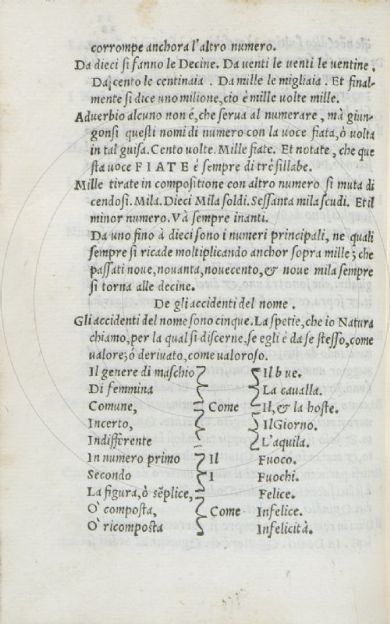 corrompe anchora l'altro numero.
Da dieci si fanno le Decine. Da uenti le uenti le uentine.
Da cento le centinaia. Da mille le migliaia. Et final-
mente si dice uno milione, cio è mille uolte mille.
Aduerbio alcuno non é, che serua al numerare, mà giun-
gonsi questi nomi di numero con la uoce fiata, ò uolta
in tal guisa. Cento uolte. Mille fiate. Et notate, che que
sta uoce FIATE é sempre di tré sillabe.
Mille tirate in compositione con altro numero si muta di
cendosi. Mila. Dieci Mila soldi. Sessanta mila scudi. Et il
minor numero. Và sempre inanti.
Da uno fino à dieci sono i numeri principali, ne quali
sempre si ricade moltiplicando anchor sopra mille; che
passati noue, nouanta, nouecento, & noue mila sempre
si torna alle decine.
De gli accidenti del nome.
Gli accidenti del nome sono cinque. La spetie, che io Natura
chiamo, per la qual si discerne, se egli è da se stesso, come
ualore; ò deriuato, come ualoroso.
Il genere di maschio Il bue.
Di femmina La caualla.
Comune, Come Il, & la hoste.
Incerto, Il Giorno.
Indifferente L'aquila.
In numero primo Il Fuoco.
Secondo I Fuochi.
La figura, ò sẽplice, Felice.
O' composta, Come Infelice.
O' ricomposta Infelicità.